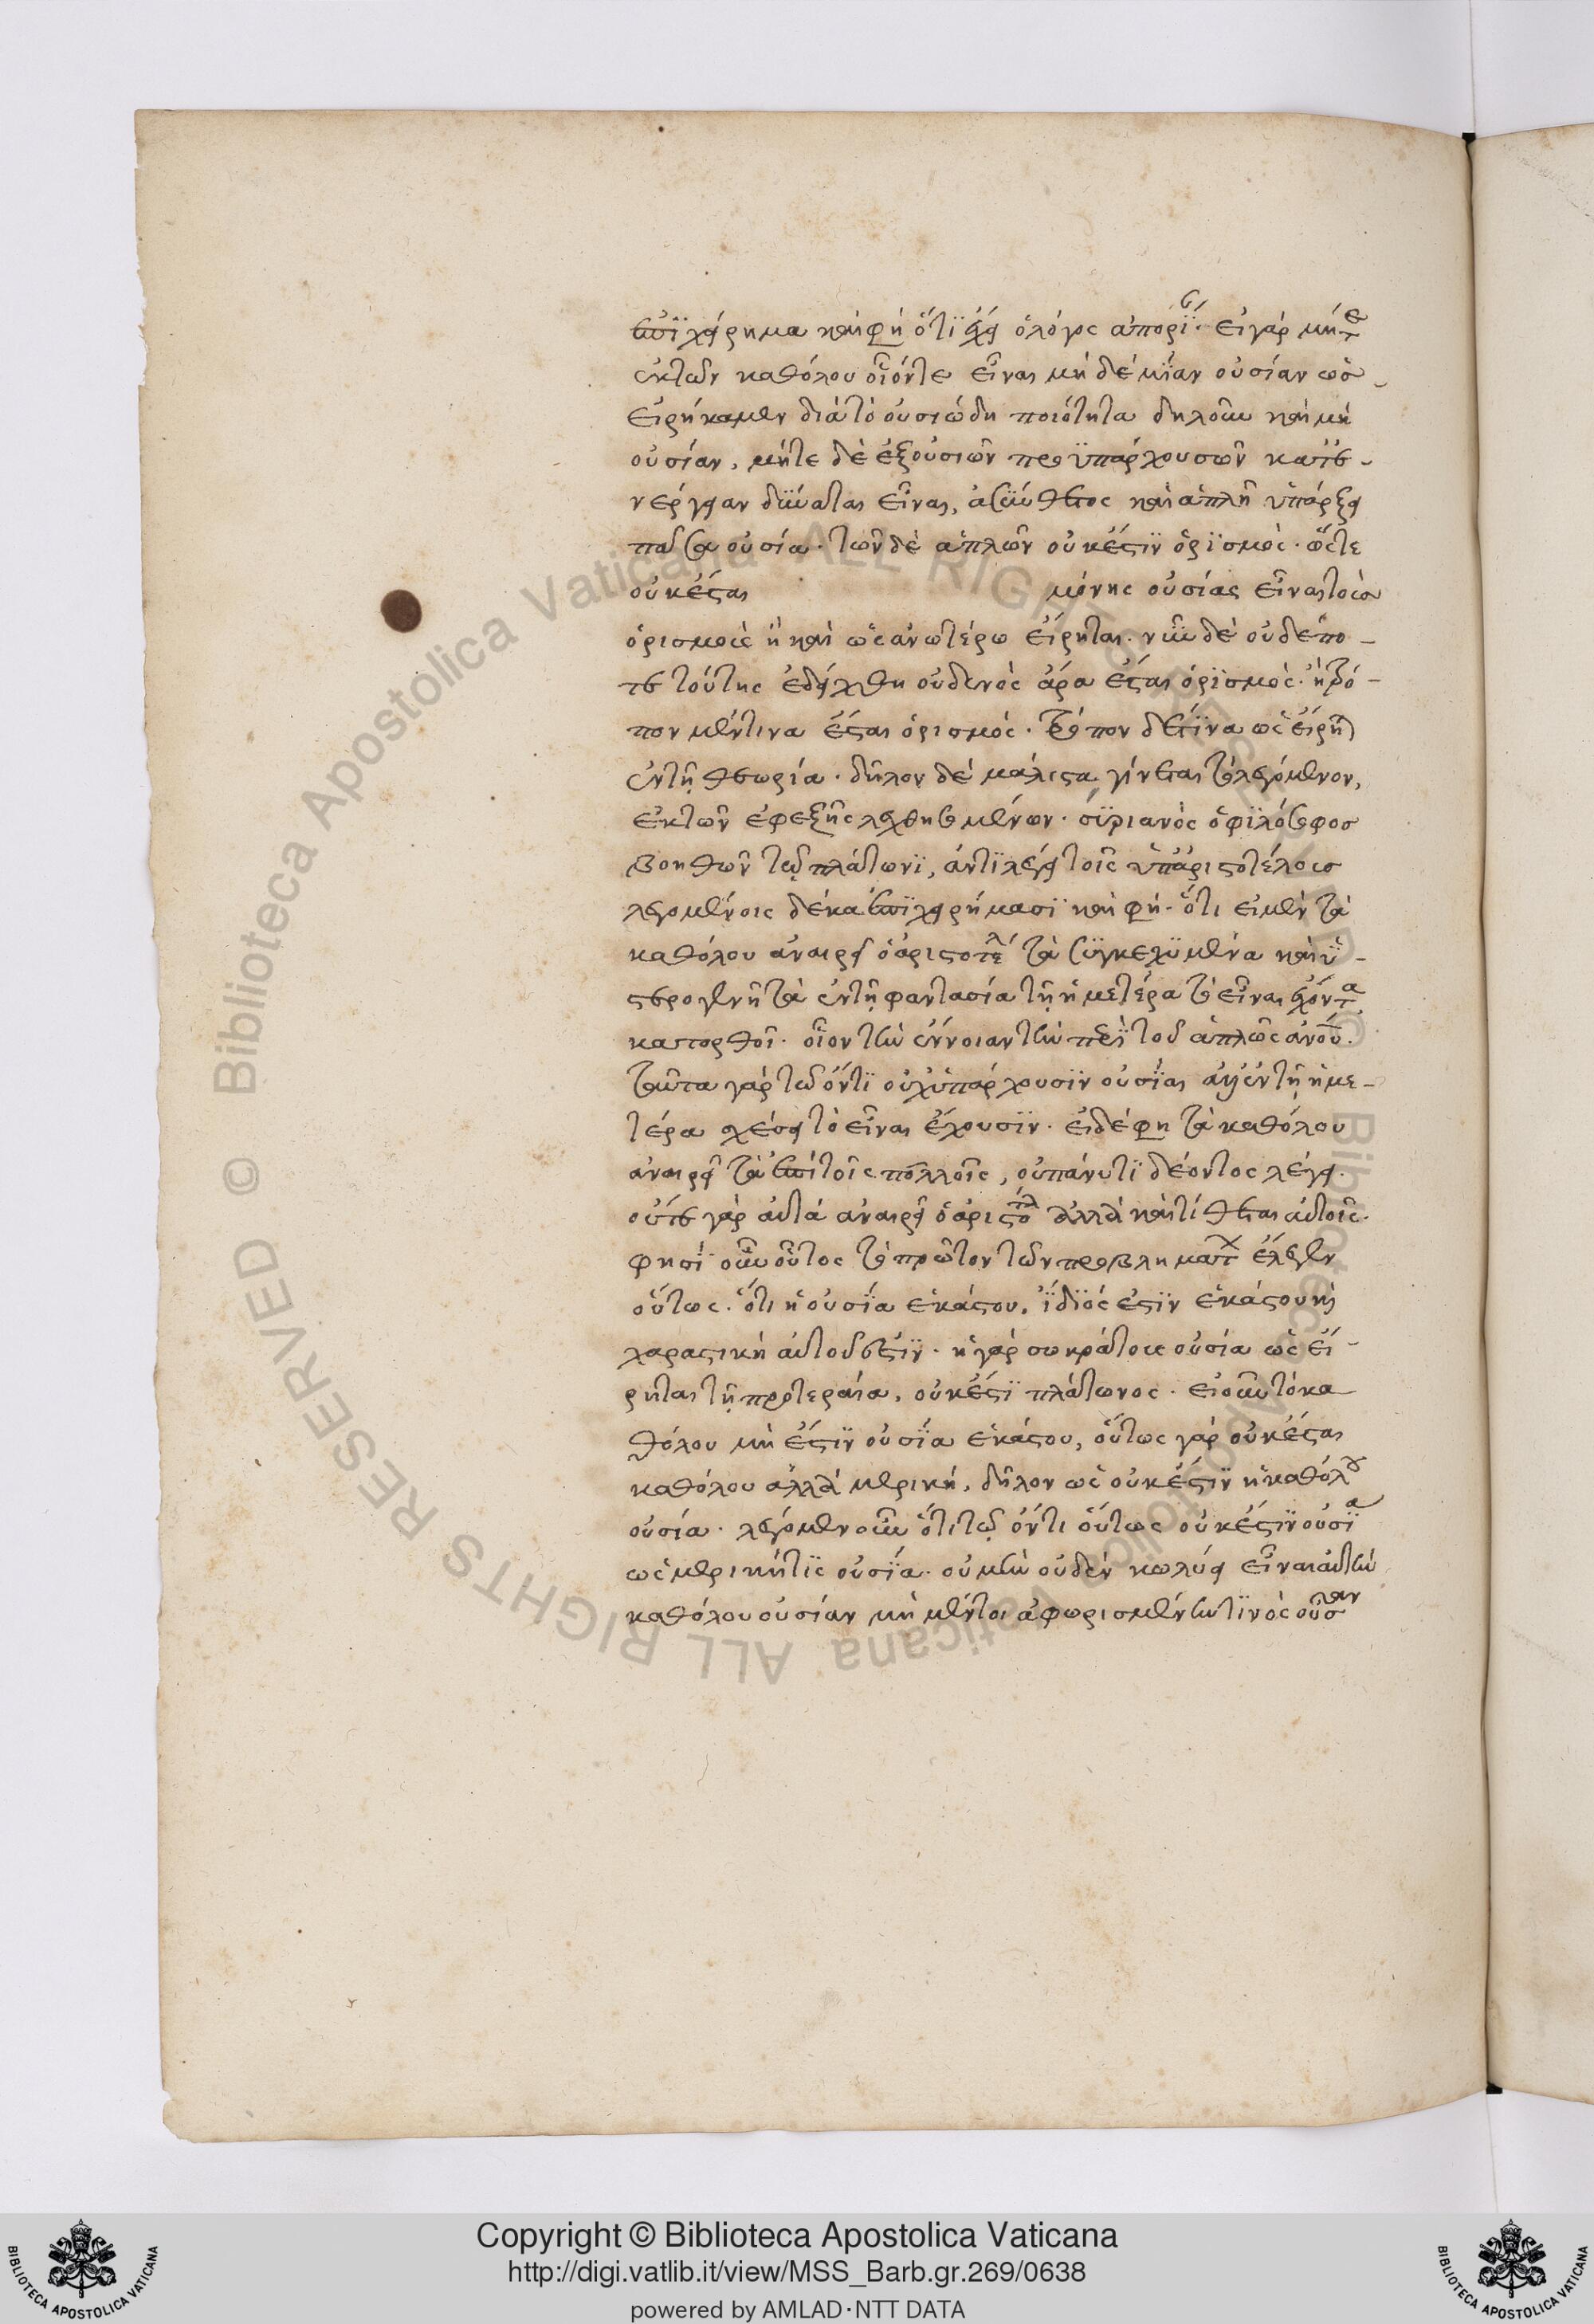 ἐπϊχείρημα καὶ φη ὅτϊ ἔχει ὁ λόγος ἀπορϊ. εἰ γάρ μήτε
ἐκ τῶν καθόλου οἷόντε εἶναι μὴ δὲ μίαν οὐσίαν ὡσ
εἰρήκαμεν διὰ τὸ οὐσιώδη ποιότητα δηλοῦν καὶ μὴ
οὐσίαν, μήτε δὲ ἐξ οὐσιῶν προϋπάρχουσῶν κατε-
νεργειαν δϋναται εἶναι, ἀσύνθετος καὶ ἁπλῆ ὑπάρξει
πᾶσα οὐσία. τῶν δὲ ἁπλῶν οὐκ ἔστϊν ὁρϊσμὸς. ὥστε
οὐκ ἔσται μόνης οὐσίας εἶναι τοὺσ
ὁρισμοὺς ἢ καὶ ὡς ἀνωτέρω εἴρηται. νῦν δὲ οὐδέπο-
τε τούτης ἐδείχθη οὐδενὸς ἄρα ἔσται ὁρϊσμὸς. ἢ τρό-
πον μέντινα ἔσται ὁρισμός. τρόπον δέ τϊνα ὡς εἴρη)
ἐν τῆ θεωρία. δῆλον δὲ μάλιστα γίνεται τὸ λεγόμενον,
ἐκ τῶν ἐφεξῆς λεχθησομένων. σϋριανὸς ὁ φϊλόσοφοσ
βοηθῶν τῷ πλάτωνϊ, ἀντϊλέγει τοῖς ὑπ' ἀριστοτέλουσ
λεγομένοις δέκα ἐπϊχειρήμασϊ καὶ φη. ὅτι εἰ μὲν τὰ
καθόλου ἀναιρεῖ ὁ ἀριστοτέλ τὰ σϋγκεχϋμένα καὶ ὑ-
στερογενῆ τὰ ἐν τῆ φαντασία τῆ ἡμετέρα τὸ εἶναι ἔχοντα
κατορθοῖ. οἷον τὴν ἔννοιαν τὴν περὶ τοῦ ἁπλῶς ἀνοῦ.
ταῦτα γὰρ τῶ ὄντϊ οὐχ ὑπάρχουσϊν οὐσϊαι ἀλλ' ἐν τῆ ἡμε-
τέρα σχέσει τὸ εἶναι ἔχουσϊν. εἰ δέ φη τὰ καθόλου
ἀναιρεῖ τὰ ἐπὶ τοῖς πολλοῖς, οὐ πάνυ τϊ δέοντος λέγει.
οὔτε γὰρ αὐτὰ ἀναιρεῖ ὁ ἀριστοτλ ἀλλὰ καὶ τίθεται αὐτοῖς.
φησϊ οὖν οὗτος τὸ πρῶτον τῶν προβλημάτ ἔλεγεν
οὕτως. ὅτι ἡ οὐσϊα ἑκάστου, ἴδϊός ἐστϊν ἑκάστου καὶ
χαραστικὴ αὐτοῦ ἐστϊν. ἡ γὰρ σωκράτους οὐσία ὡς εἴ-
ρηται τῆ προτεραία, οὐκ ἔστϊ πλάτωνος. εἰ οὖν τὸ κα
θόλου μὴ ἔστϊν οὐσϊα ἑκάστου, οὕτως γὰρ οὐκ ἔσται
καθόλου ἀλλὰ μερική, δῆλον ὡς οὐκ ἔστϊν ἡ καθόλου
οὐσία. λέγομεν οὖν ὅτι τῷ ὄντι οὕτως οὐκ ἔστϊν οὐσϊα
ὡς μερικήτϊς οὐσϊα. οὐ μὴν οὐδὲν κωλύει εἶναι αὐτὴν
καθόλου οὐσίαν μὴ μέντοι ἀφωρισμένην τϊνὸς οὖσαν